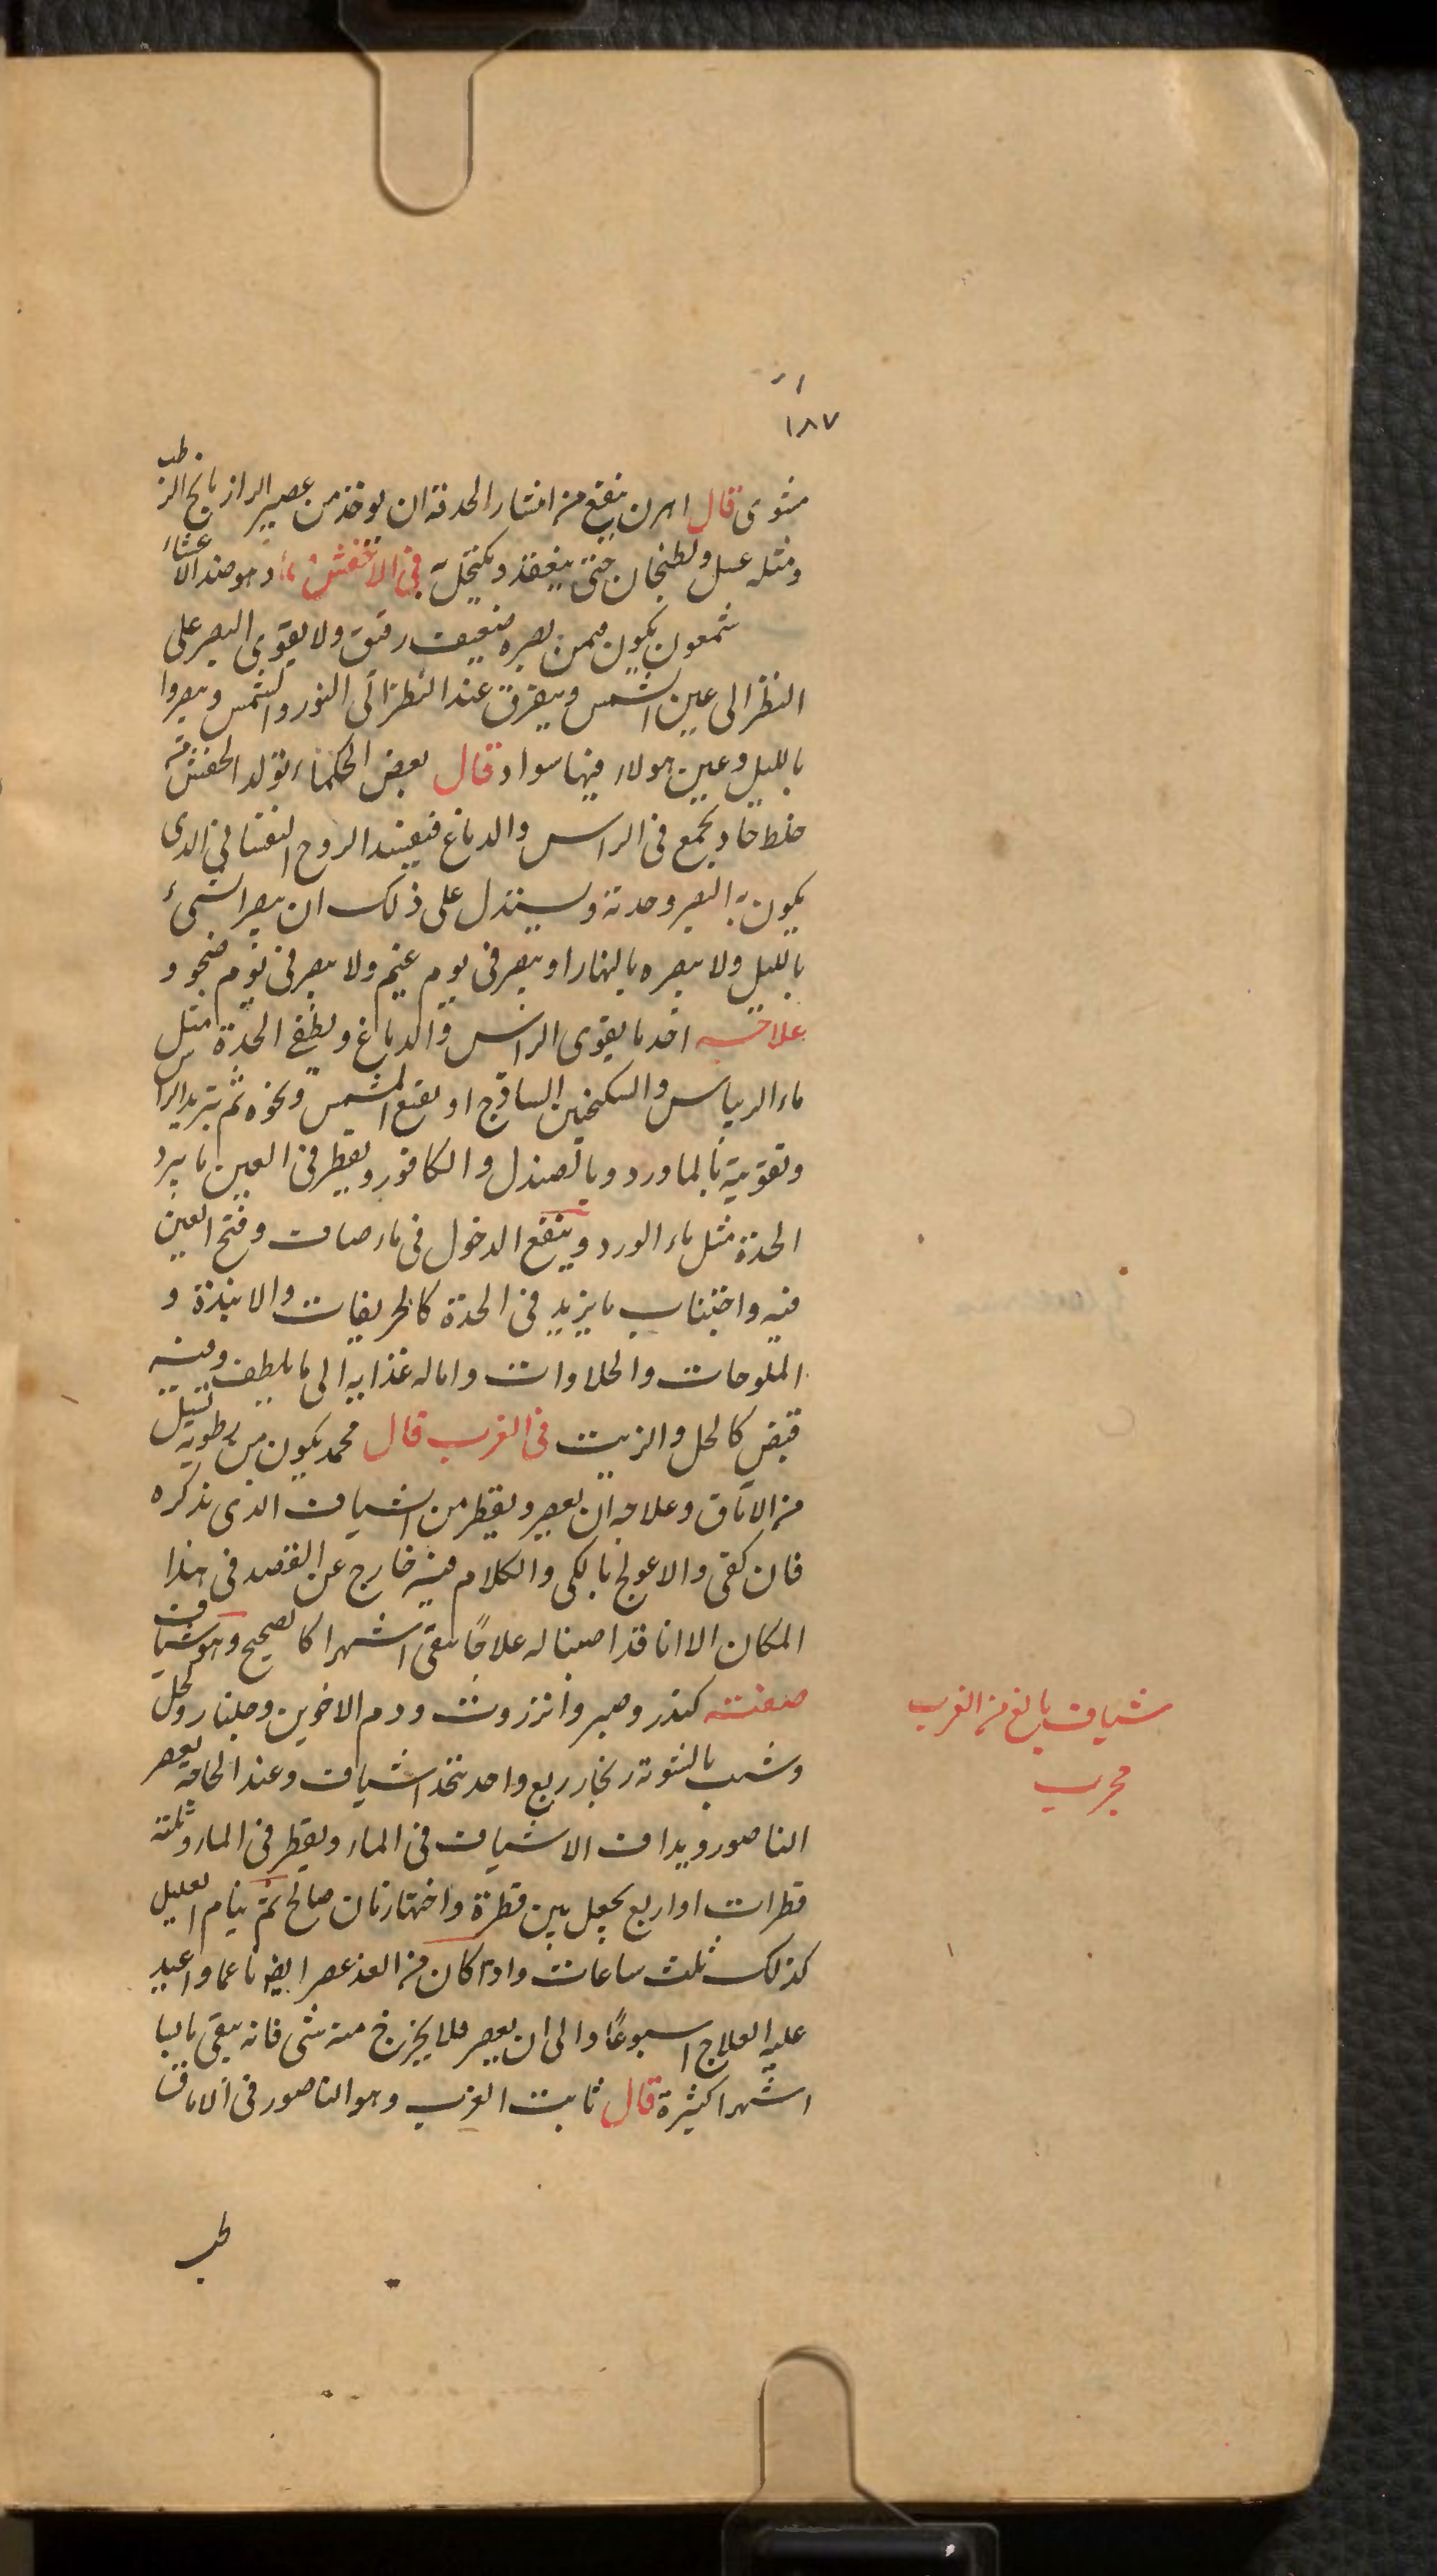 ١٨٧
مثوى قال اهرن ينفع من انتشار الحدقة ان يوخذ من عصير الرازيانج الرطب
ومثله عسل ويطبخان حتى ينعقد ويكتحل به في الاخفش وهو ضد الاعشاء
شمعون يكون ممن بصره ضعيف رقيق ولا يقوى البصر على
النظر الى عين الشمس ويتفرق عند النظر الى النور والشمس ويبصروا
بالليل وعين هولاء فيها سواد قال بعض الحكماء تولد الخفش من
خلط حاد يجمع في الراس والدماغ فيفسد الروح النفساني الذي
يكون به البصر وحدته ويستدل على ذلك ان يبصر الشيء
بالليل ولا يبصره بالنهار او يبصر في يوم غيم ولا يبصر في يوم صحو و
علاجه اخذ ما يقوى الراس والدماغ ويطفي الحدة مثل
ماء الريباس والسكنجبين الساذج او نقيع المشمس ونحوه ثم تبريد الراس
وتقويته بالماورد وبالصندل والكافور ويقطر في العين ما يبرد
الحدة مثل ماء الورد وينفع الدخول في ماء صاف وفتح العين
فيه واجتناب ما يزيد في الحدة كالحريفات والانبذة و
الملوحات والحلاوات واماله غذايه الى ما يلطف وفيه
قبض كالخل والزيت في الغرب قال محمد يكون من رطوبة تسيل
من الآماق وعلاجه ان يعصر ويقطر من الشياف الذي نذكره
فان كفى والا عولج بالكى والكلام فيه خارج عن القصد في هذا
المكان الا انا قد اصبنا له علاجًا يبقى اشهرا كالصحيح وهو شياف
صفته كندر وصبر وانزروت ودم الاخوين وجلنار وكحل
وشب بالسوية زنجار ربع واحد يتخذ اشياف وعند الحاجة يعصر
الناصور ويداف الاشياف في الماء ويقطر في الماء وثلثة
قطرات او اربع يجعل بين قطرة واختها زمان صالح ثم ينام العليل
كذلك ثلث ساعات واذا كان من الغد عصر ايضا ناعما واعيد
عليه العلاج اسبوعًا والى ان يعصر فلا يخرج منه شى فانه يبقى يابسا
اشهرا كثيرة قال ثابت الغرب وهو الناصور في الاماق
شياف بالغ من الغرب
مجرب